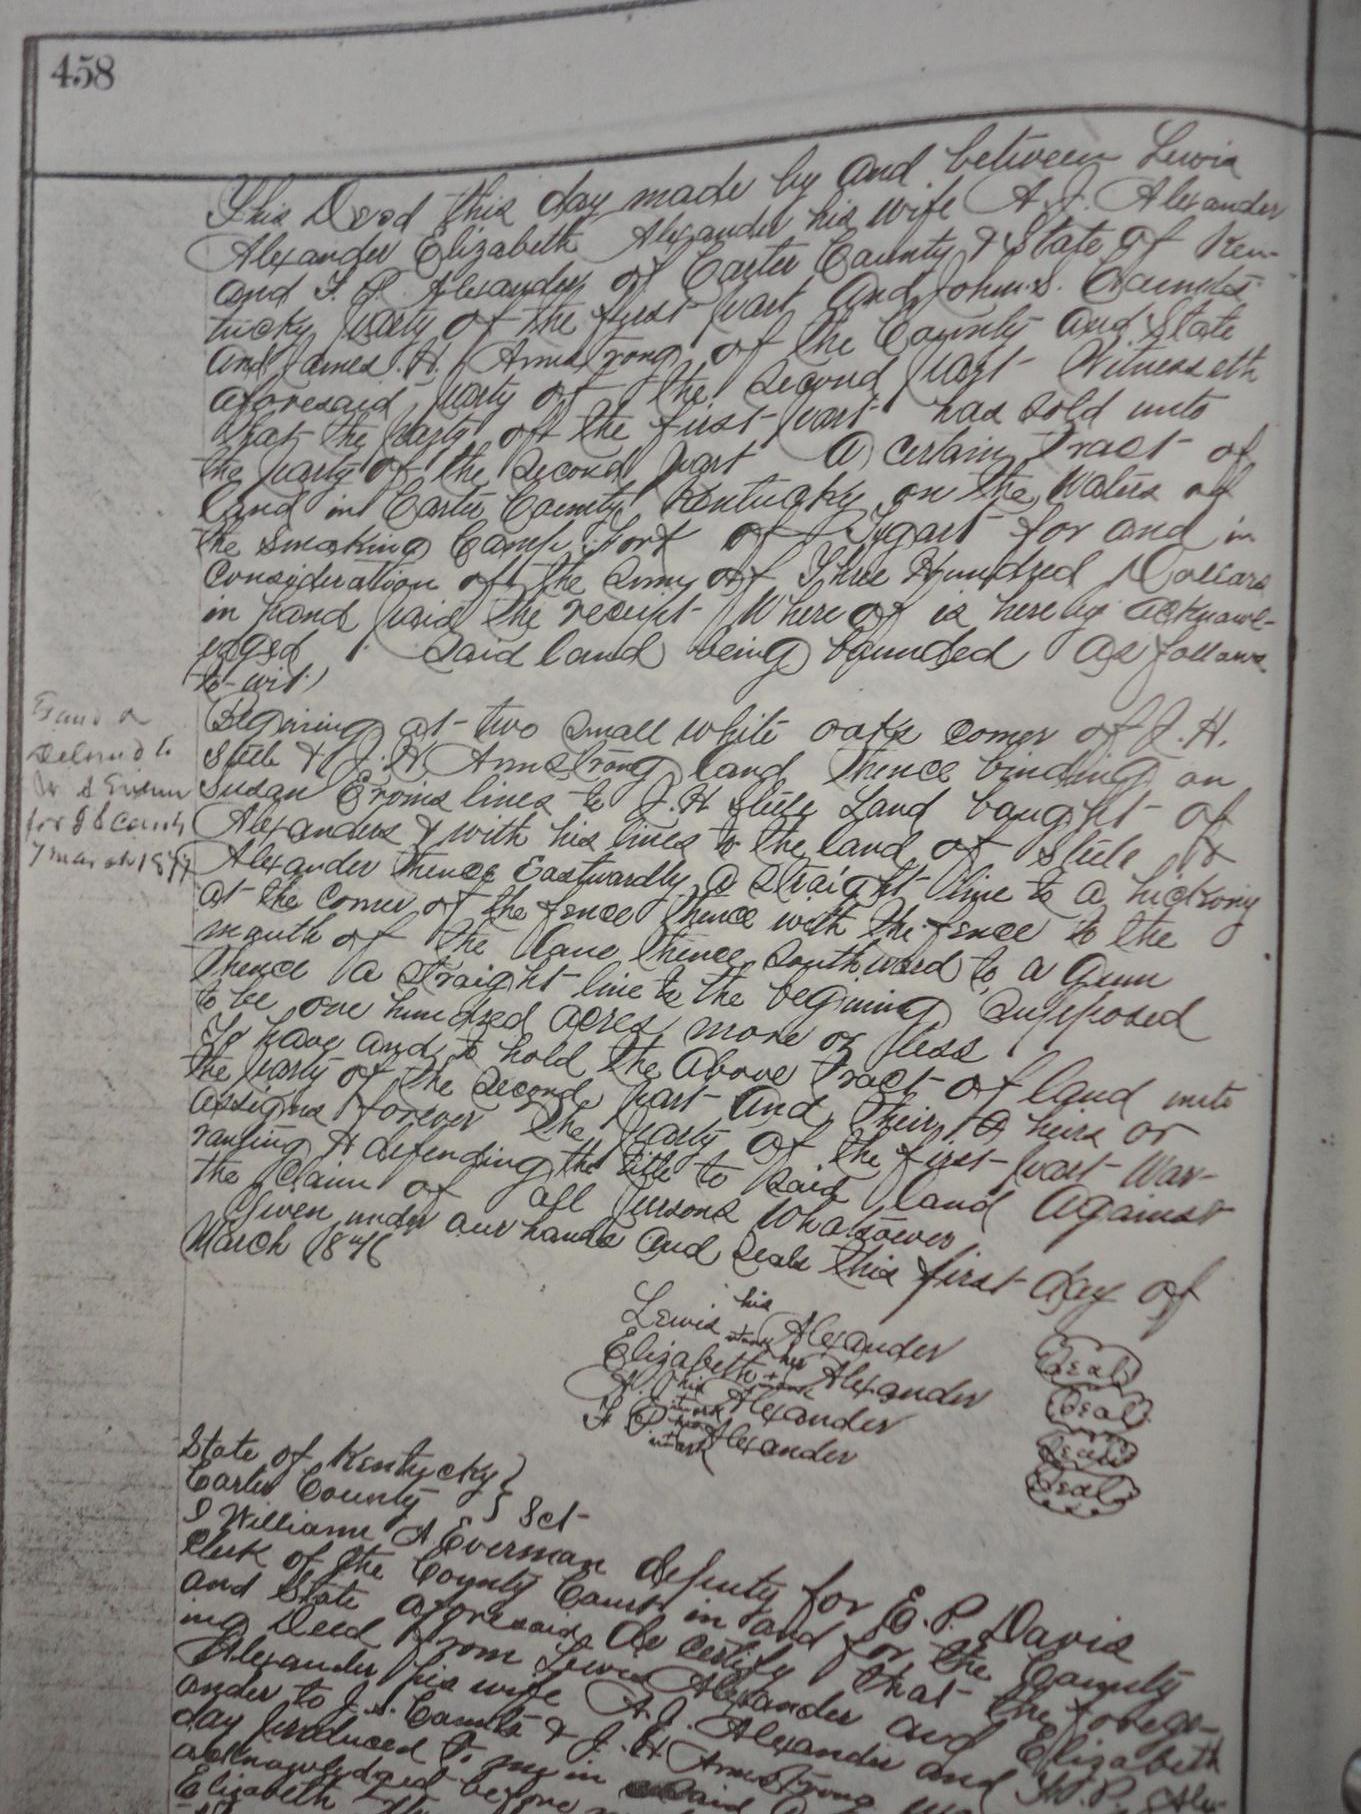 458
This Deed this day made by and between Lewis
Alexander Elizabeth Alexander his wife A. J. Alexander
and F. P. Alexander of Carter County & State of Ken-
tucky party of the first part and John S. Counts
and James H. Armstrong of the County and State
aforesaid party of the second part Witnesseth
that the party off the first part has sold unto
the party of the second part a certain Tract of
land in Carter County Kentucky on the Waters of
the Smoking Camp Fork of Tygart for and in
consideration off the Sum of Three Hundred Dollars
in hand paid the receipt Where of is hereby acknowl-
edged Said land being bounded as follows
to-wit)
Begining at two small white oaks corner of J. H.
Steele & J. H Armstrong land Thence binding on
Susan lines to J. H Steele Land bought of
Alexanders & with his lines to the land of Steele &
Alexander thence Eastwardly a straight line to a hickory
at the corner of the fence thence with the fence to the
mouth of the lane thence Southward to a Gum
Thence a straight line to the begining Supposed
to be one hundred acres more or less
To have and to hold the above Tract of land unto
the party of the second part and their heirs or
assigns forever The party of the first part War-
ranting & defending the title to said land Against
the Claim of all persons Whatsoever
Given under our hands and seals this first day of
March 1876
Lewis his mark Alexander Seal
Elizabeth her + mark Alexander Seal
A. J. his mark Alexander Seal
F P his mark Alexander Seal
delivered to
for J S Counts
7 march 1877
State of Kentucky }
Carter County } Sct
I William A Everman deputy for E. P. Davis
Clerk of the County Court in and for the County
and State aforesaid do certify that the forego-
ing Deed from Lewis Alexander and Elizabeth
Alexander his wife A. J. Alexander and Alex-
ander to J. S. Counts & J. H Armstrong was
day produced to me in said
acknowledged before
Elizabeth